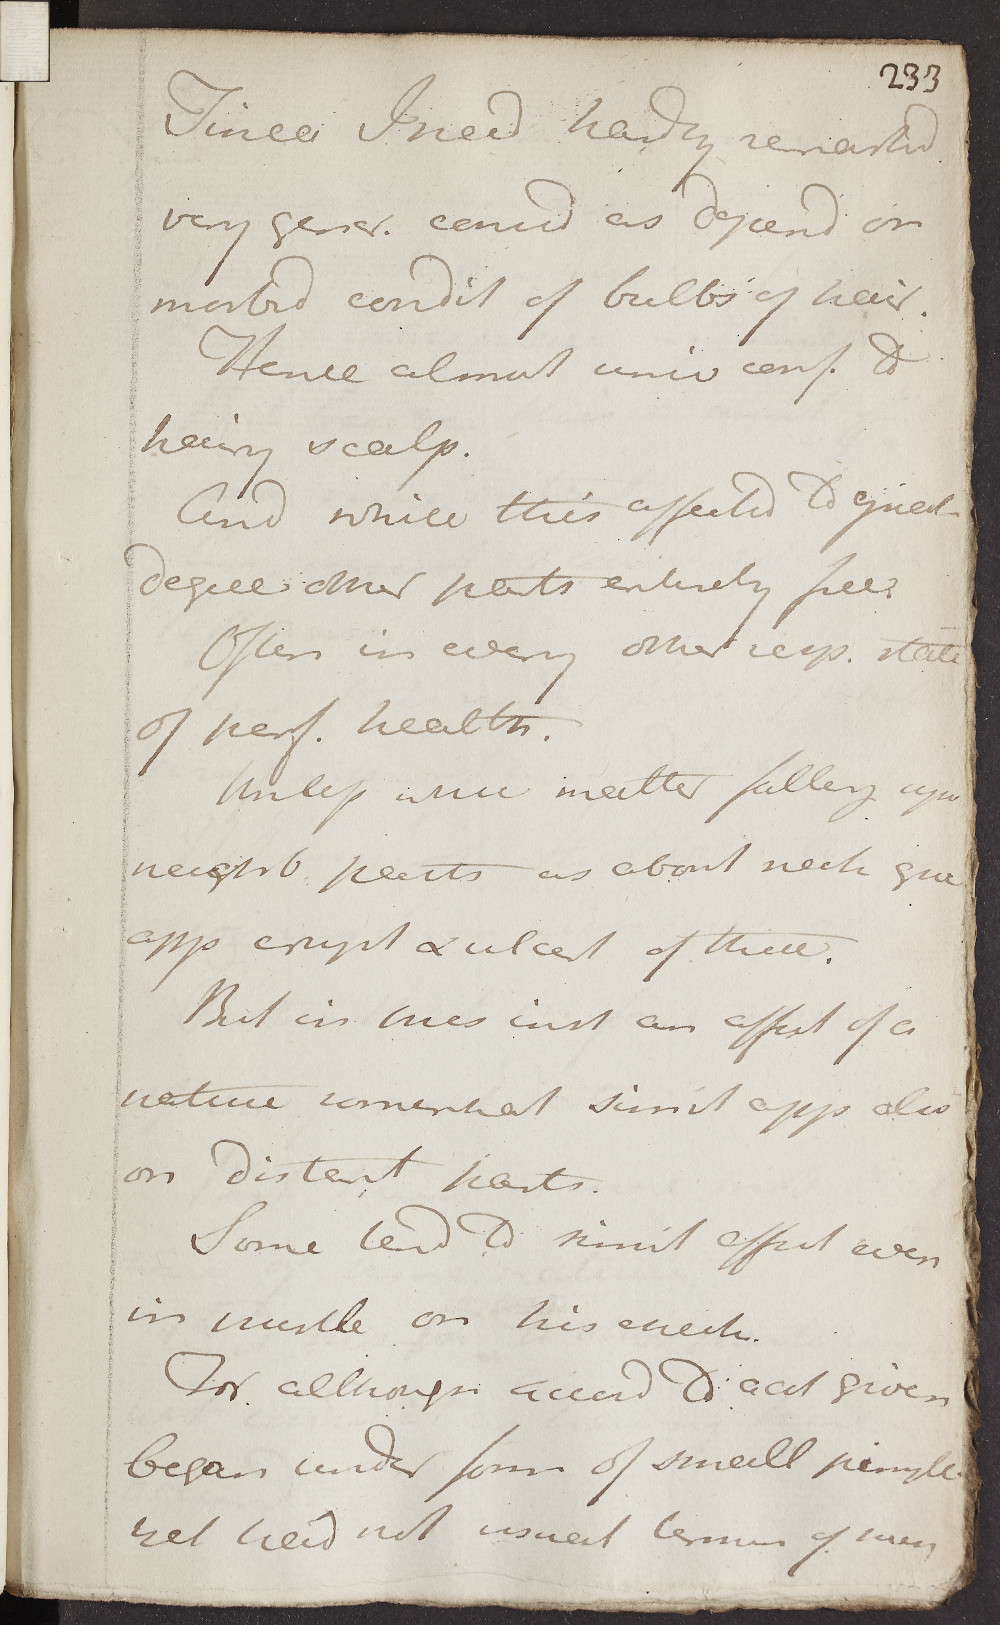 233
Tinea I need hardly remark'd
very gener. consid as depend on
morbid condit of bulbs of hair.
Hence almost univ conf. to
hairy scalp.
And while this affected to great
degree other parts entirely free.
Often in every other resp. state
of perf. health.
Unless where matter falling upon
neighb parts as about neck give
app erupt & ulcerat of these.
But in this inst an affect of a
nature somewhat simil app also
on distant parts.
Some tend to simil affect even
in on his cheek.
For although accord to acct given
began under form of small pimple
yet had not usual termin of